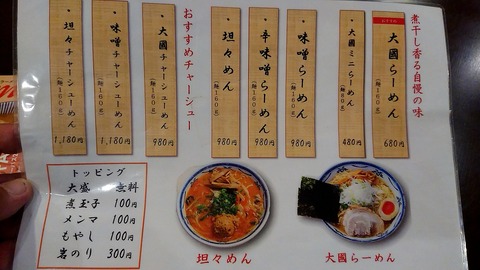 煮干し香る自慢の味
おすすめ
大國らーめん（麺160g） 680円
・大國ミニらーめん（麺80g） 480円
・味噌らーめん（麺160g） 980円
・辛味噌らーめん（麺160g） 980円
・坦々めん（麺160g） 980円
おすすめチャーシュー
・大國チャーシューめん（麺160g） 980円
・味噌チャーシューめん（麺160g） 1,180円
・坦々チャーシューめん（麺160g） 1,180円
トッピング
大盛 無料
煮玉子 100円
メンマ 100円
もやし 100円
岩のり 300円
坦々めん
大國らーめん